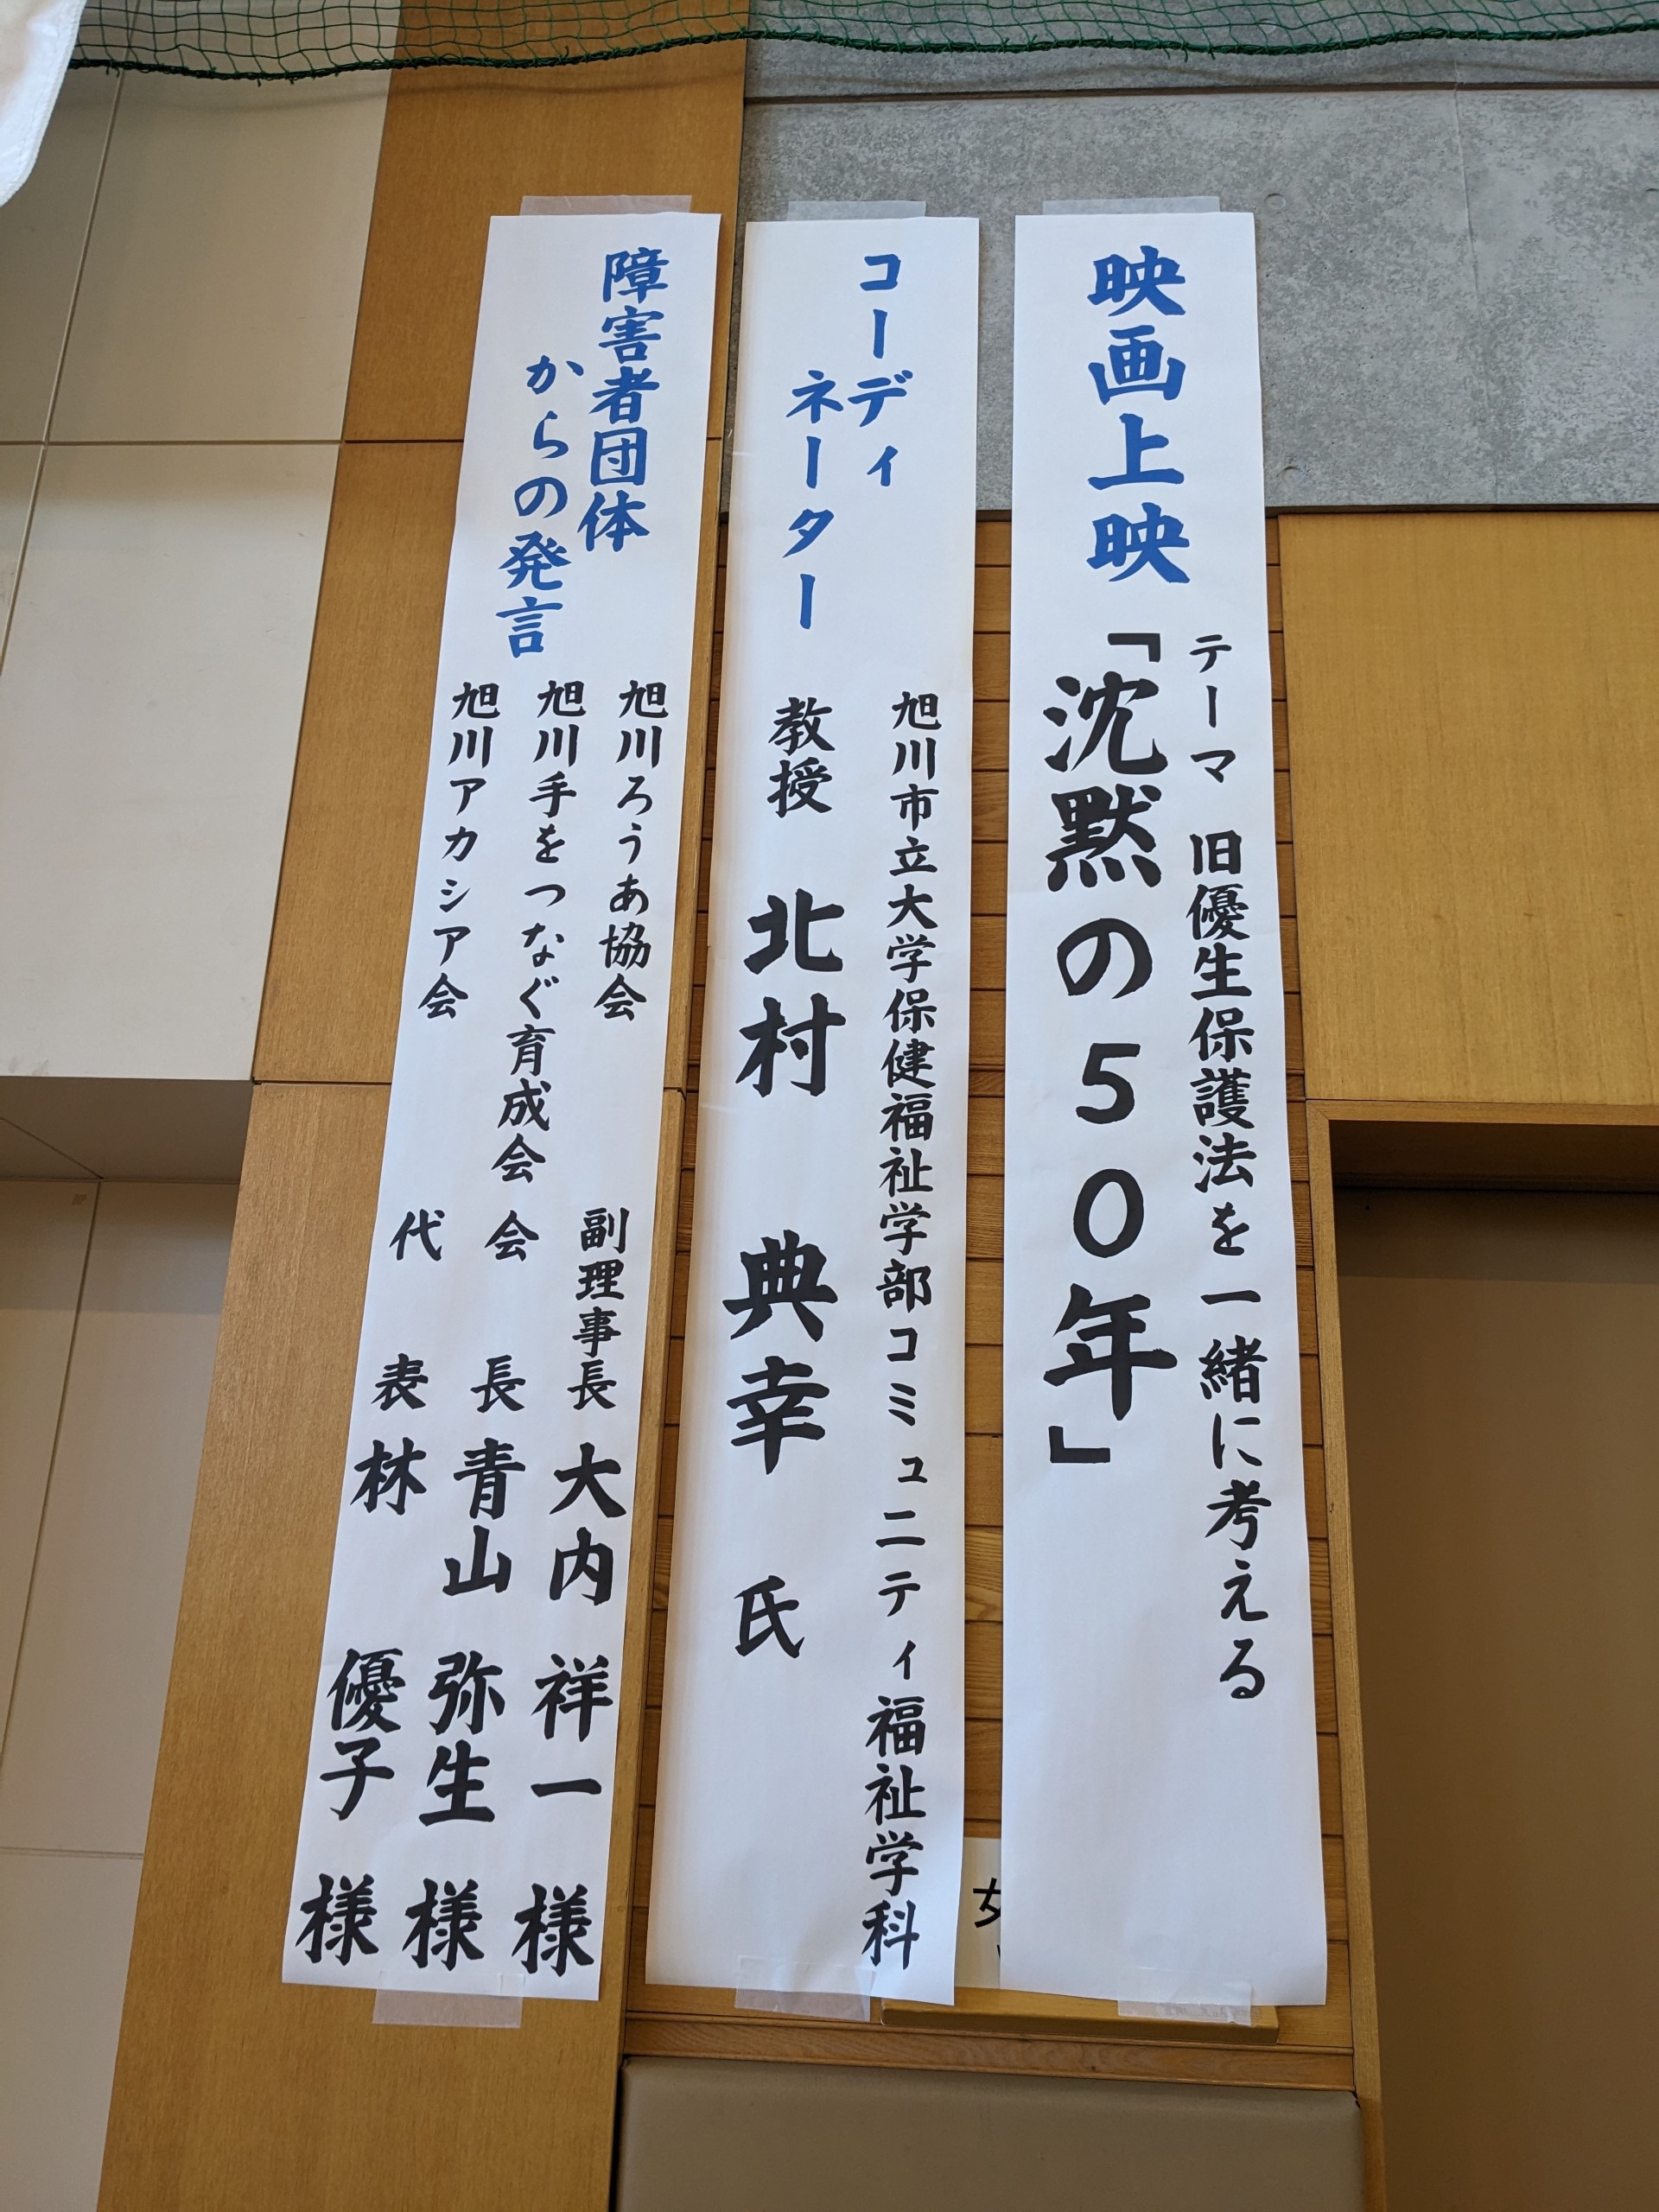 映画上映
テーマ 旧優生保護法を一緒に考える
「沈黙の50年」
コーディ
ネーター
旭川市立大学保健福祉学部コミュニティ福祉学科
教授 北村 典幸 氏
障害者団体
からの発言
旭川ろうあ協会 副理事長 大内 祥一 様
旭川手をつなぐ育成会 会長 青山 弥生 様
旭川アカシア会 代表 林 優子 様
女